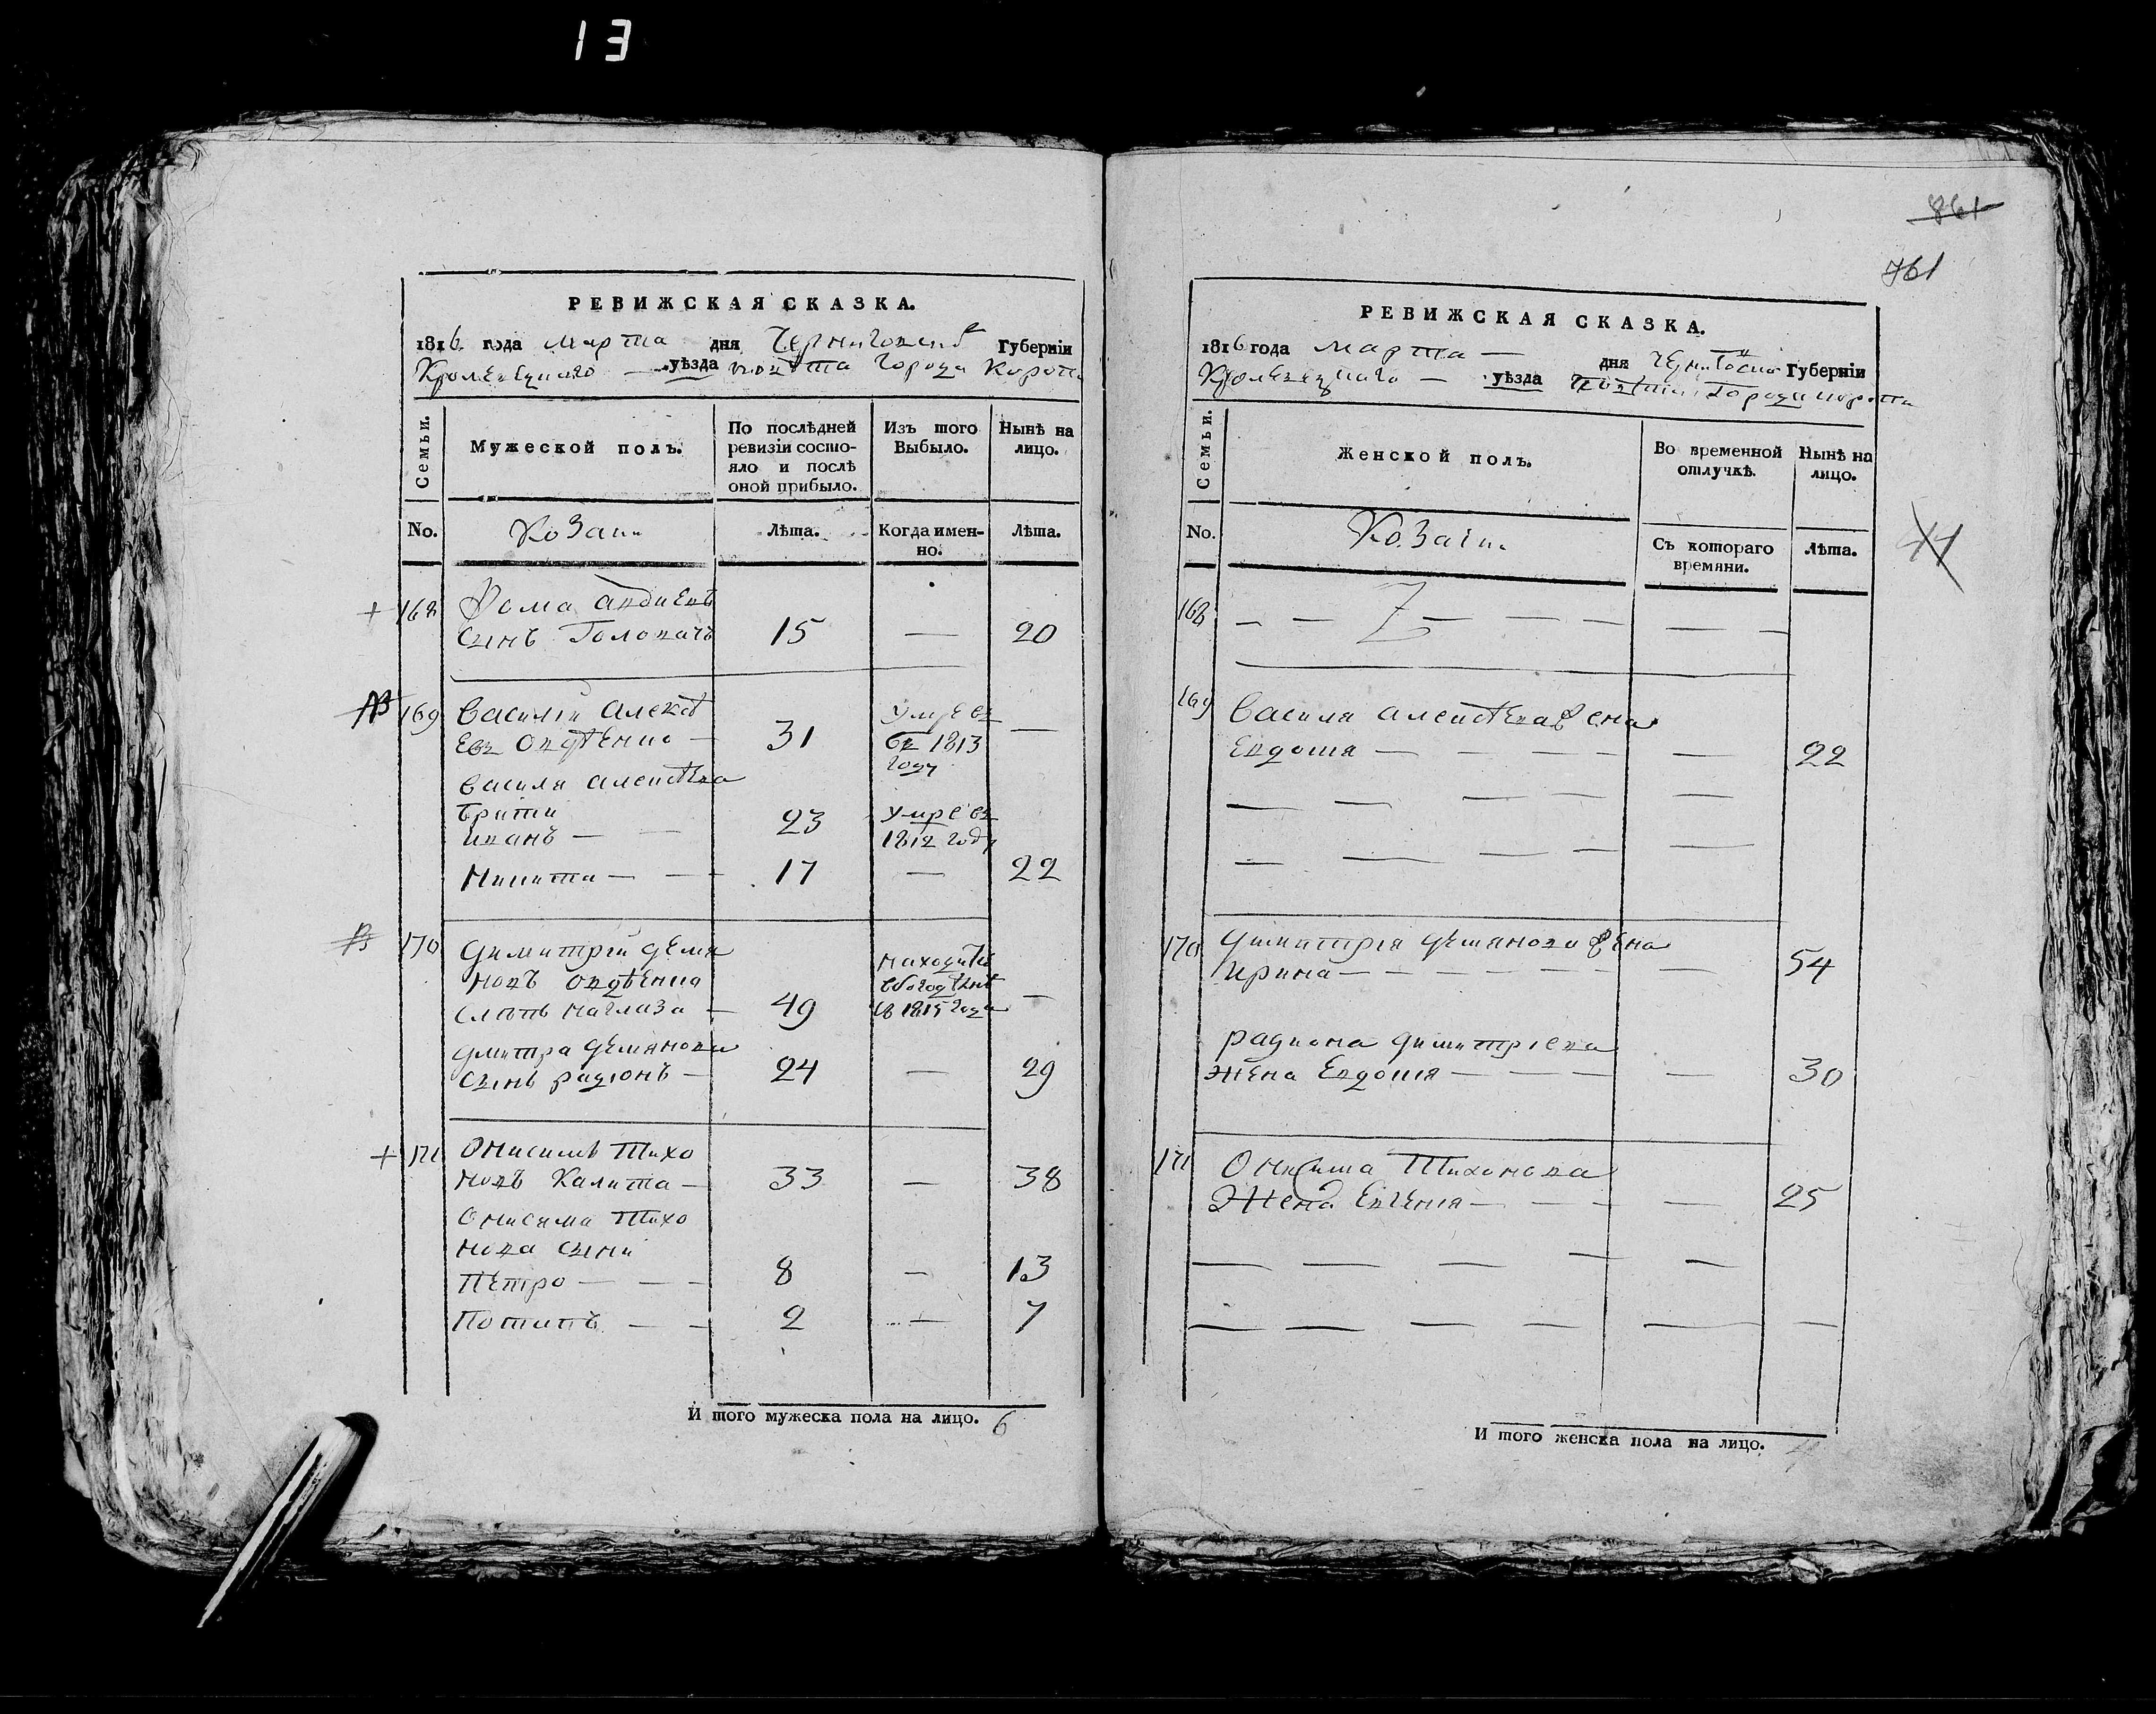 13
РЕВИЖСКАЯ СКАЗКА.
1816 года марта дня Черниговской Губерніи
Кролевецкаго уѣзда повѣта города Коропа
Семьи.
Мужеской полъ.
По послѣдней ревизіи состо-яло и послѣ оной прибыло.
Изъ того Выбыло.
Нынѣ на лицо.
No.
Козаки
Лѣта.
Когда имен-но.
Лѣта.
168 Фома Авдиевъ
сынъ Головачъ 15 — 20
169 Василій Алексѣ
евъ Овдѣенко — 31 Умре въ 1813 году —
Василя Алексѣева
брати
Иванъ — — 23 умре въ 1812 году
Никита — — 17 — 22
170 Димитрій Демя
новъ Овдѣенко
слѣпъ на глаза — 49 находится в богодѣлнѣ с 1815 года —
Дмитра Демянова
сынъ Радіонъ — 24 — 29
171 Онисимъ Тихо
новъ Калита — 33 — 38
Онисима Тихо
нова сыни
Петро — — — 8 — 13
Потапъ — — 2 — 7
И того мужеска пола на лицо. 6
861
761
РЕВИЖСКАЯ СКАЗКА.
1816 года Марта — дня Губерніи
Кролевецкаго — уѣзда Города Коропа
Семьи.
Женской полъ.
Во временной отлучкѣ.
Нынѣ на лицо.
No.
Козаки
Съ котораго времяни.
Лѣта.
168
169 Василя Алексѣева жена
Евдокия — — — — — 22
170 Димитрія Демянова жена
Ирина — — — — — — 54
Радиона Димитріева
жена Евдокия — — — — 30
171 Онисима Тихонова
Жена Евгения — — — — 25
И того женска пола на лицо. 4